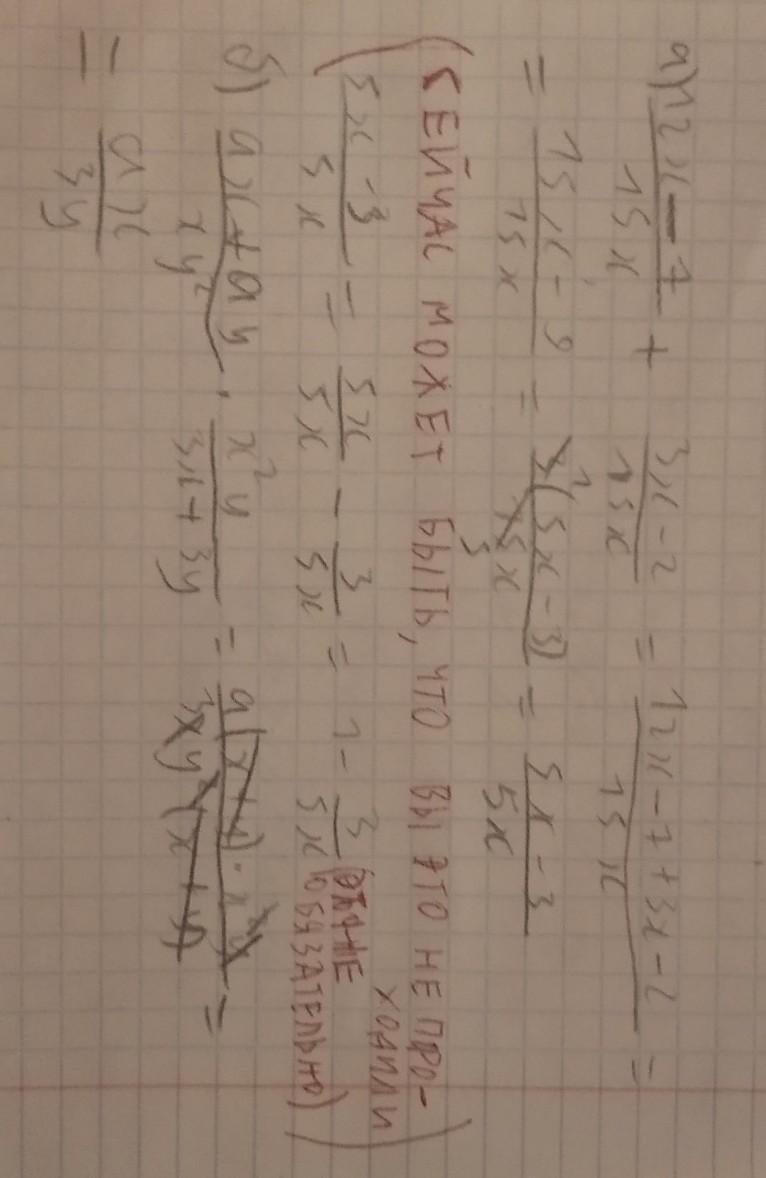 а) (12x-7)/(15x) + (3x-2)/(15x) = (12x-7+3x-2)/(15x) =
= (15x-9)/(15x) = (3(5x-3))/(15x) 1 5 = (5x-3)/(5x)
(СЕЙЧАС МОЖЕТ БЫТЬ, ЧТО ВЫ ЭТО НЕ ПРО-
ХОДИЛИ
(5x-3)/(5x) = (5x)/(5x) - 3/(5x) = 1 - 3/(5x) НЕ
ОБЯЗАТЕЛЬНО)
б) (ax+ay)/(xy²) · (x²y)/(3x+3y) = (a(x+y)·x²y)/(3xy²(x+y)) =
= (ax)/(3y)